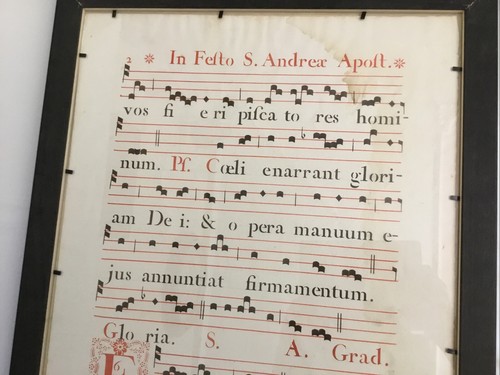 2 In Feſto S. Andreæ Apoſt.
vos fi eri piſca to res homi-
num. Pſ. Cœli enarrant glori-
am De i: & o pera manuum e-
jus annuntiat firmamentum.
Glo ria. S. A. Grad.